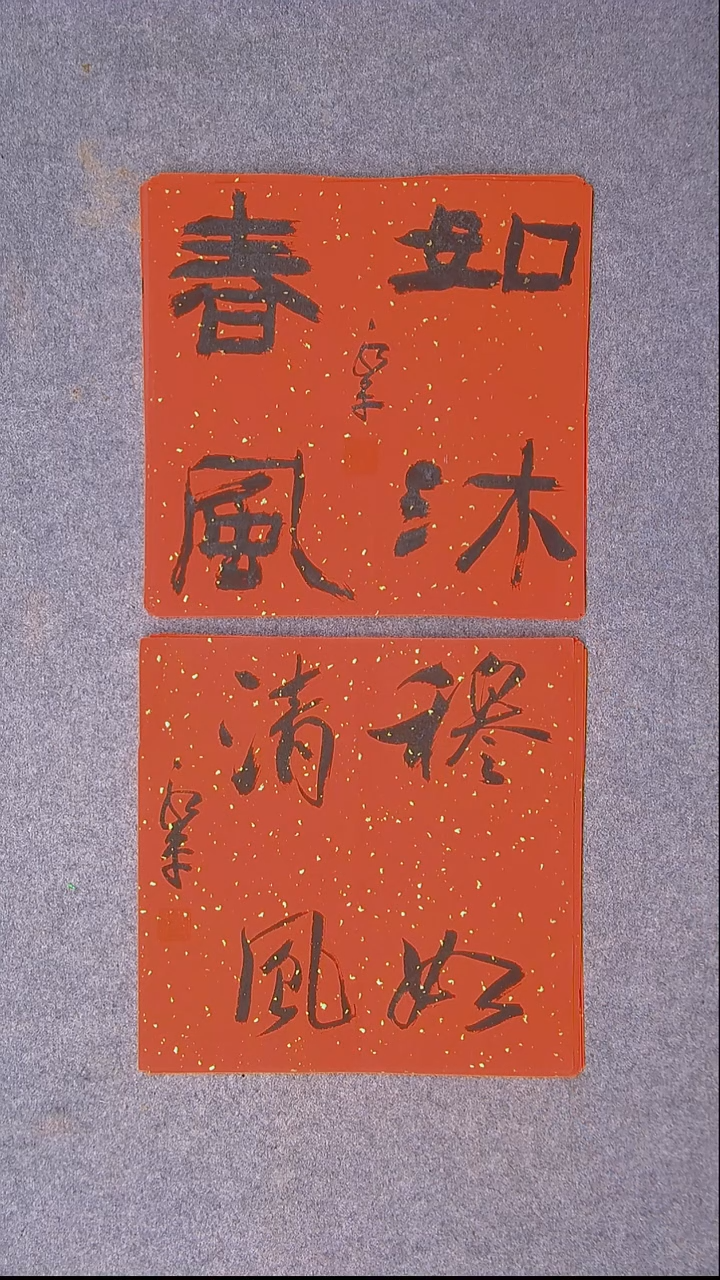 如沐
春風
穆如
清風